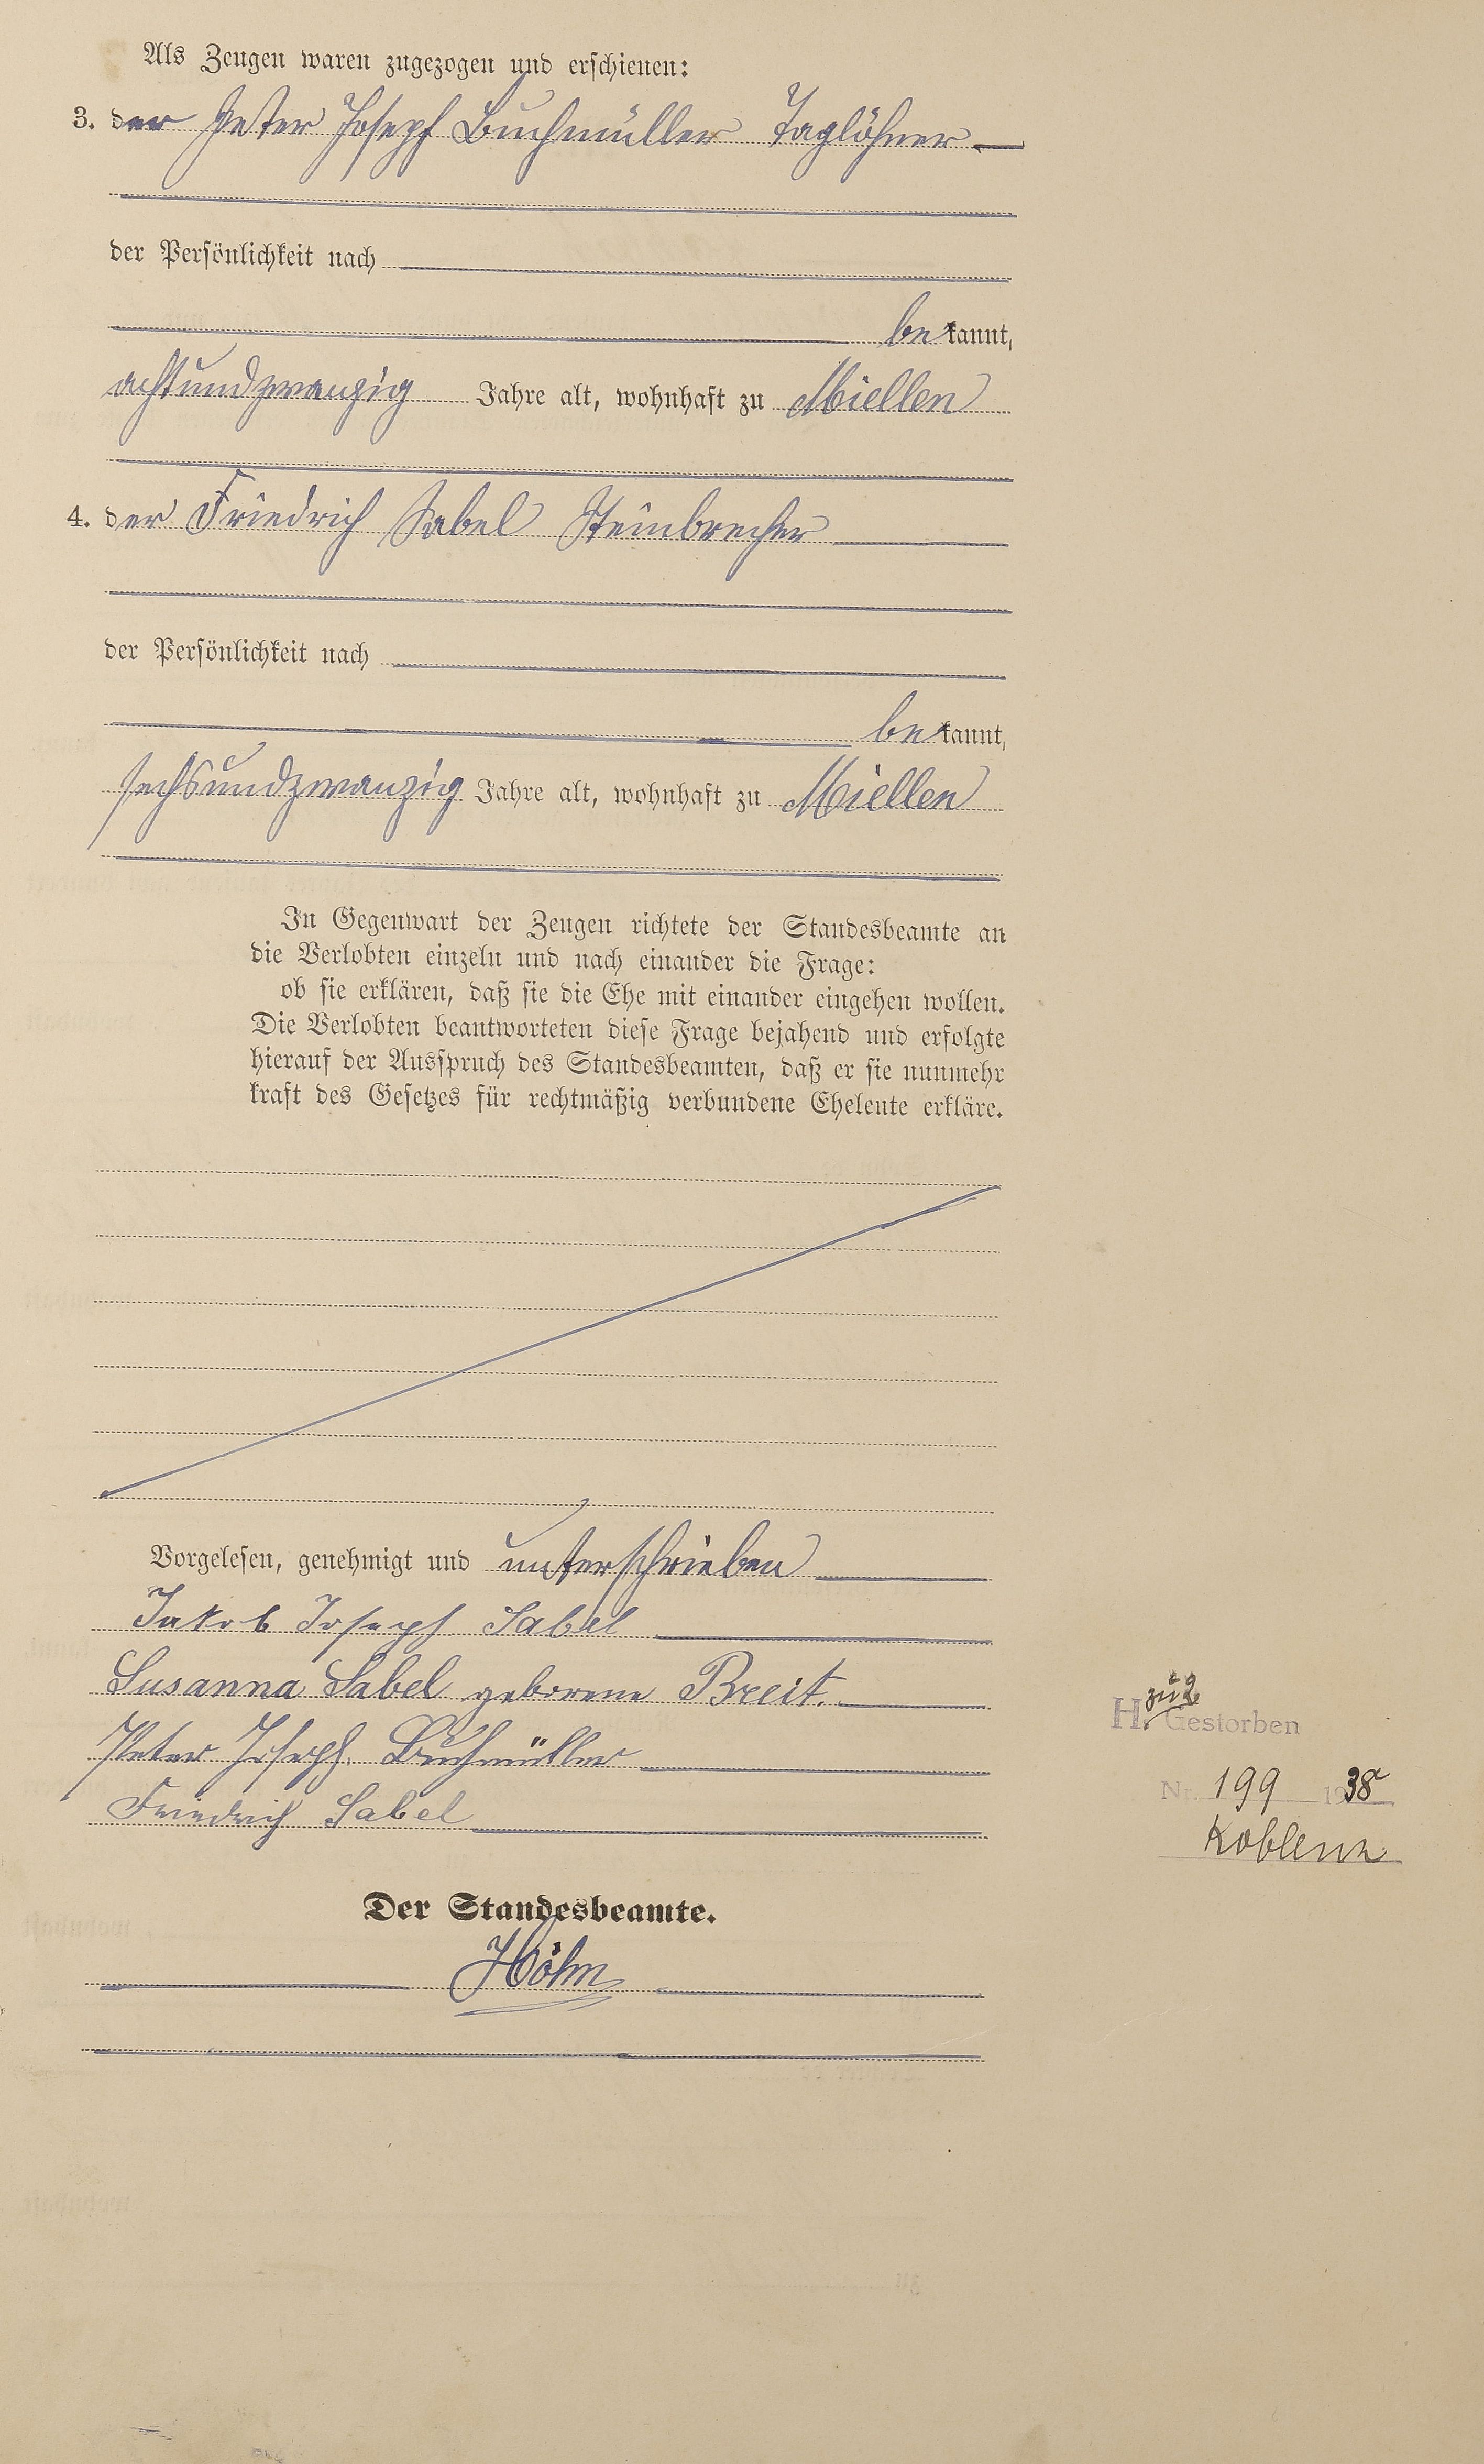 Als Zeugen waren zugezogen und erschienen:
3. der Peter Joseph Buchmüller Taglöhner
der Persönlichkeit nach
bekannt,
achtundzwanzig Jahre alt, wohnhaft zu Miellen
4. der Friedrich Sabel Steinbrecher
der Persönlichkeit nach
bekannt,
sechsundzwanzig Jahre alt, wohnhaft zu Miellen
In Gegenwart der Zeugen richtete der Standesbeamte an
die Verlobten einzeln und nach einander die Frage:
ob sie erklären, daß sie die Ehe mit einander eingehen wollen.
Die Verlobten beantworteten diese Frage bejahend und erfolgte
hierauf der Ausspruch des Standesbeamten, daß er sie nunmehr
kraft des Gesetzes für rechtmäßig verbundene Eheleute erkläre.
Vorgelesen, genehmigt und unterschrieben
Jakob Joseph Sabel
Susanna Sabel geborene Breit.
Peter Joseph Buchmüller
Friedrich Sabel
Der Standesbeamte.
Höhn
zu 2
H. Gestorben
Nr. 199 1938
Koblenz